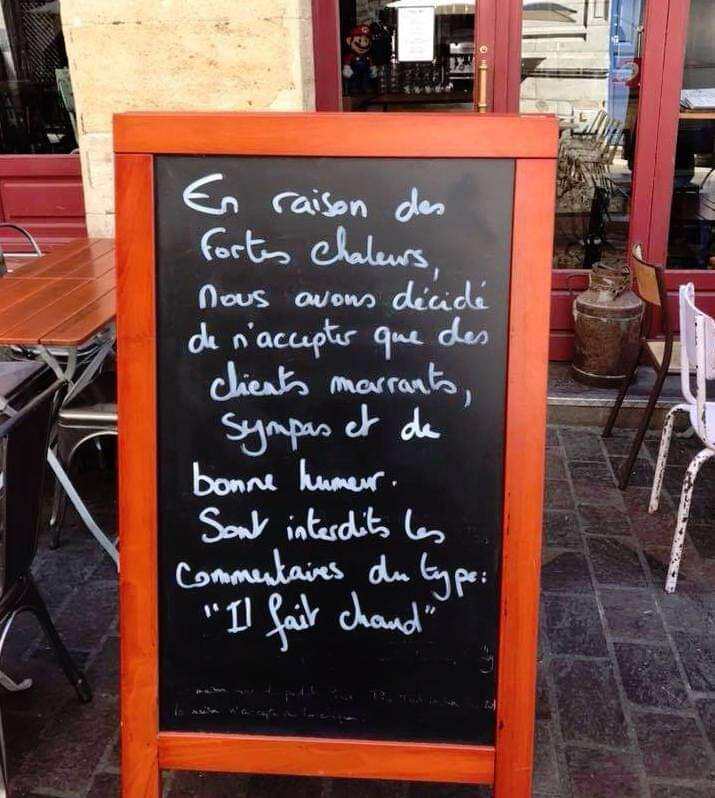 En raison des
fortes chaleurs,
nous avons décidé
de n'accepter que des
clients marrants,
sympas et de
bonne humeur.
Sont interdits les
commentaires du type:
"Il fait chaud"